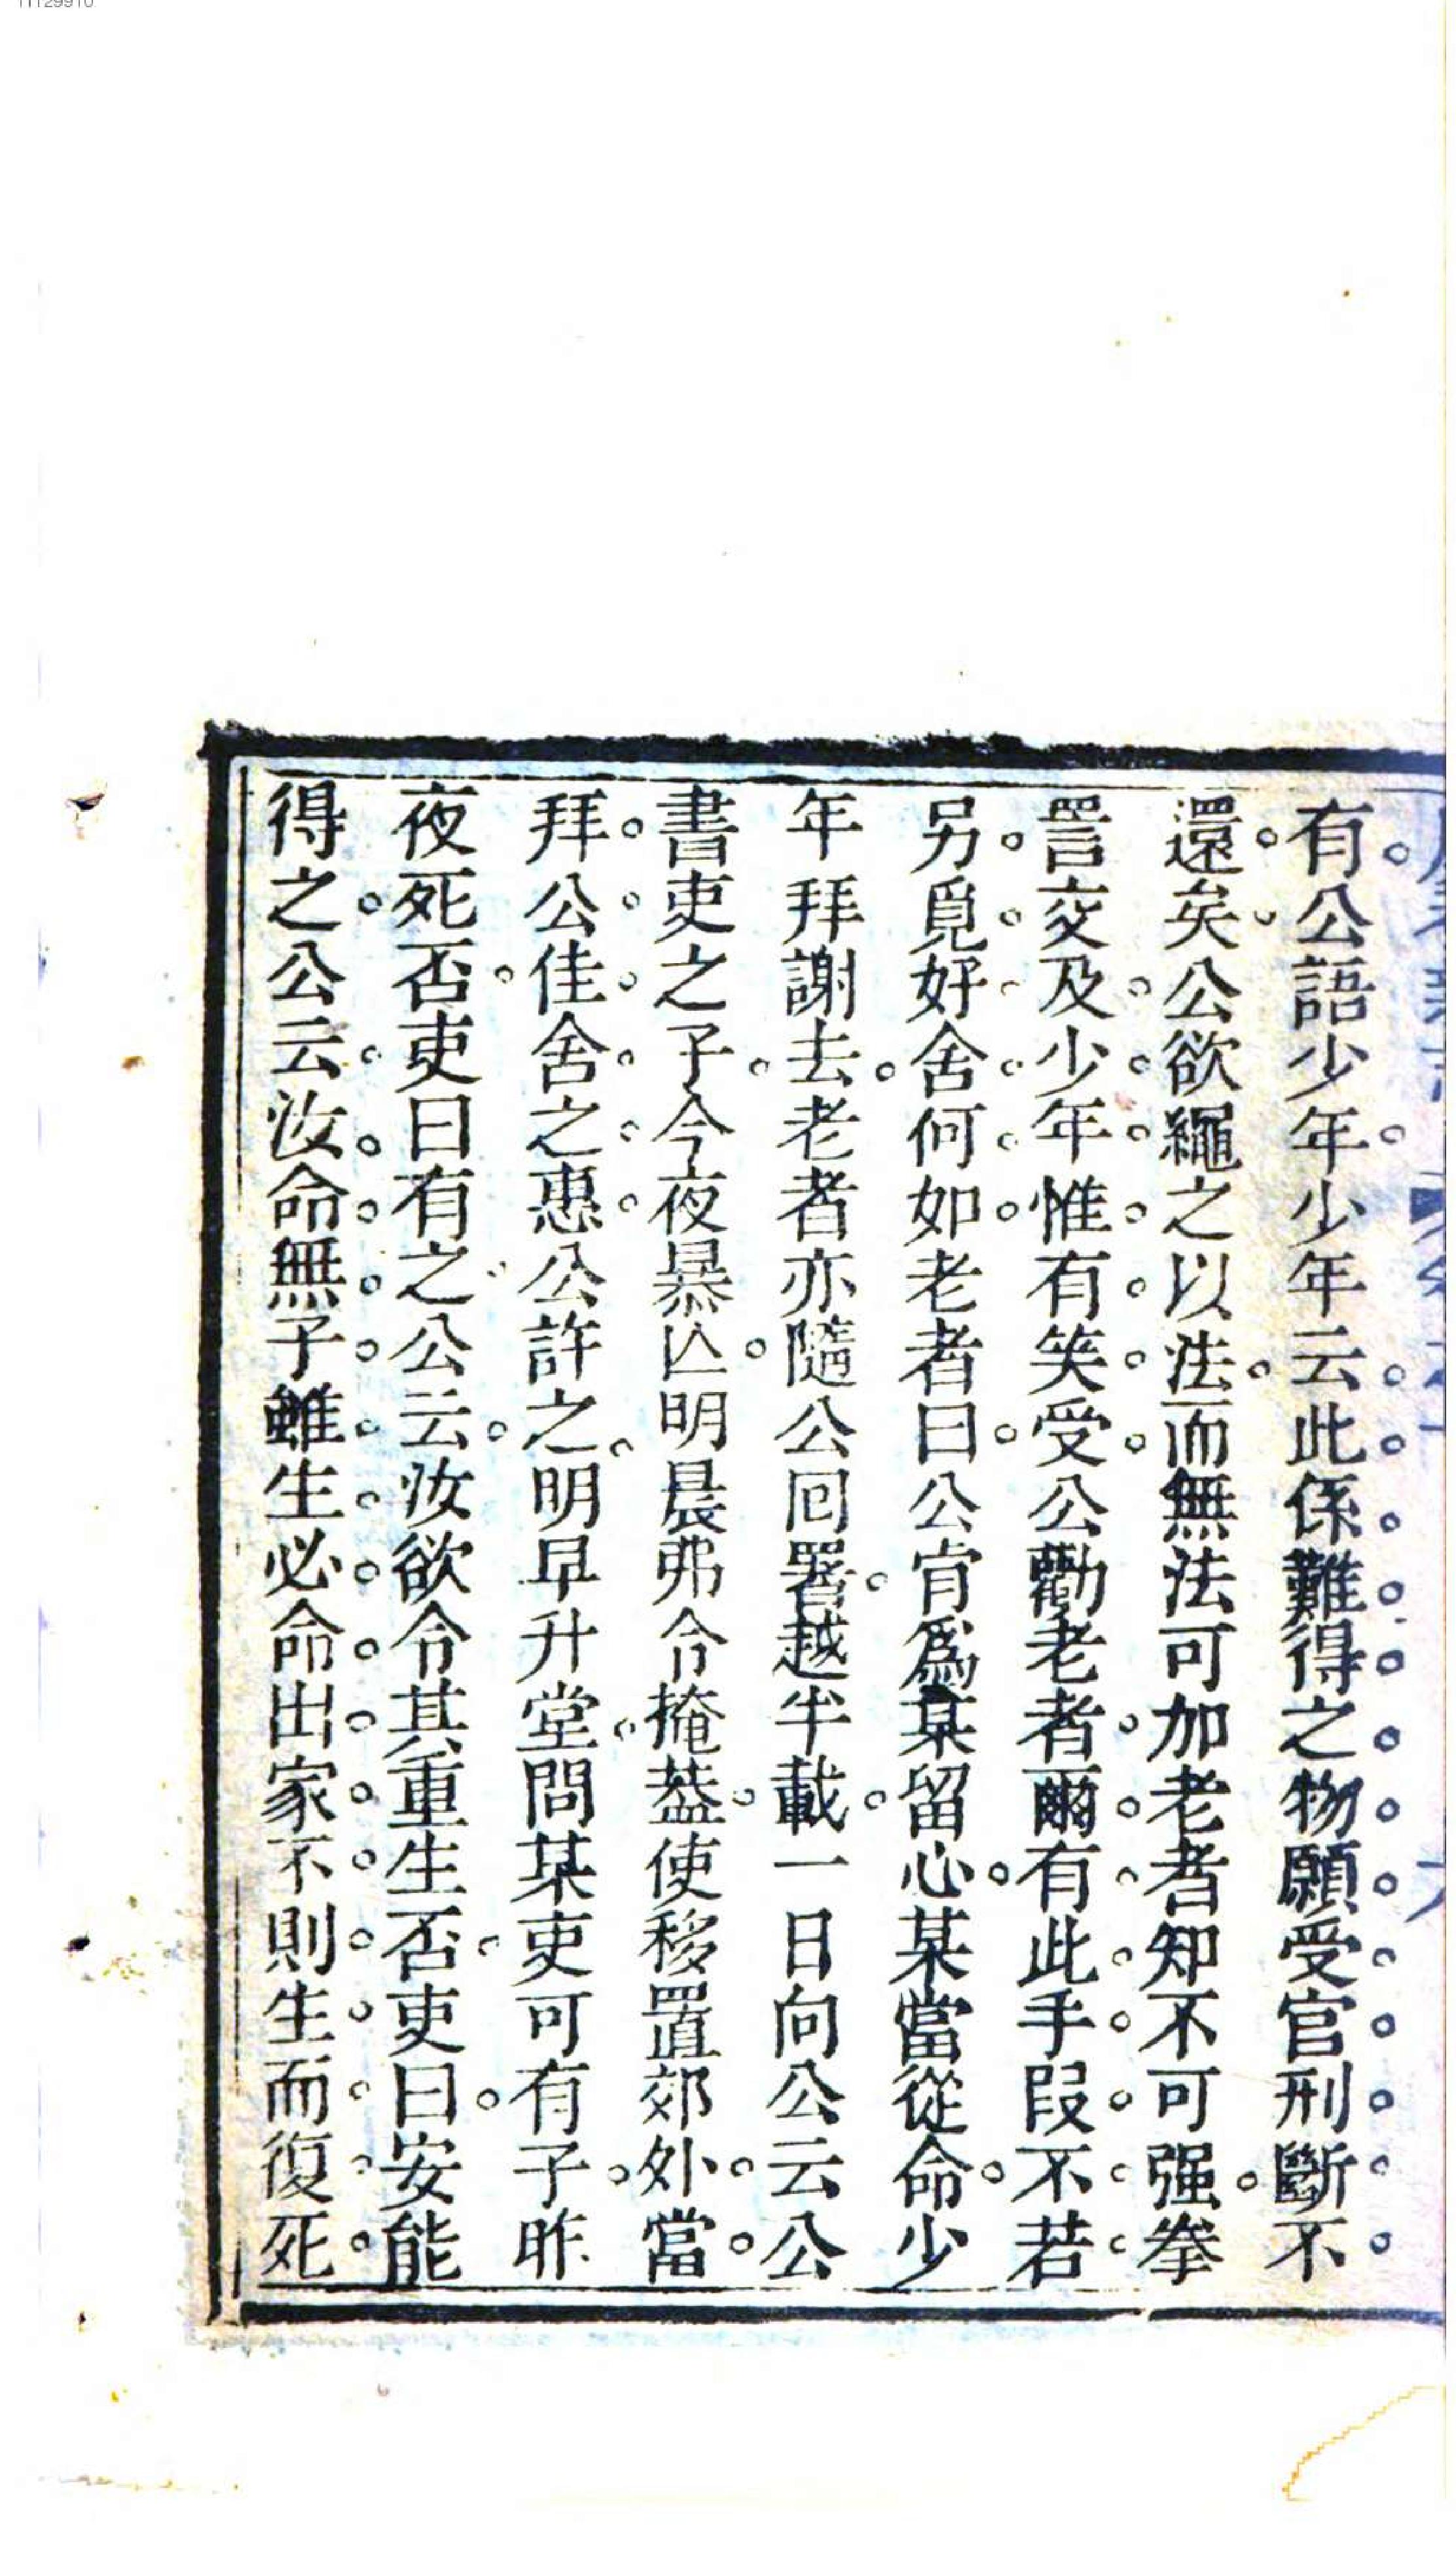 有公語少年少年云此係難得之物願受官刑斷不
還矣公欲繩之以法而無法可加老者知不可强拳
詈交及少年惟有笑受公勸老者爾有此手段不若
另覓好舍何如老者曰公肯爲某留心某當從命少
年拜謝去老者亦隨公回署越半載一日向公云公
書吏之子今夜暴亾明晨弗令掩葢使移置郊外當
拜公佳舍之惠公許之明早升堂問某吏可有子昨
夜死否吏曰有之公云汝欲令其重生否吏曰安能
得之公云汝命無子雖生必命出家不則生而復死